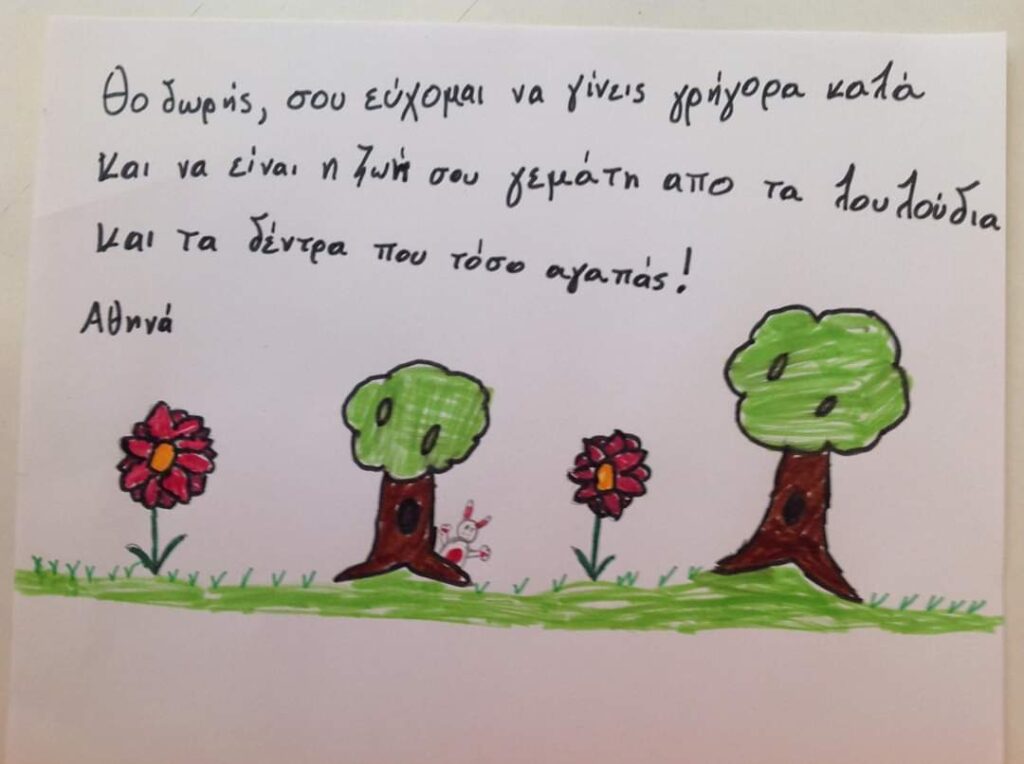 Θοδωρής, σου εύχομαι να γίνεις γρήγορα καλά
και να είναι η ζωή σου γεμάτη απο τα λουλούδια
και τα δέντρα που τόσο αγαπάς!
Αθηνά